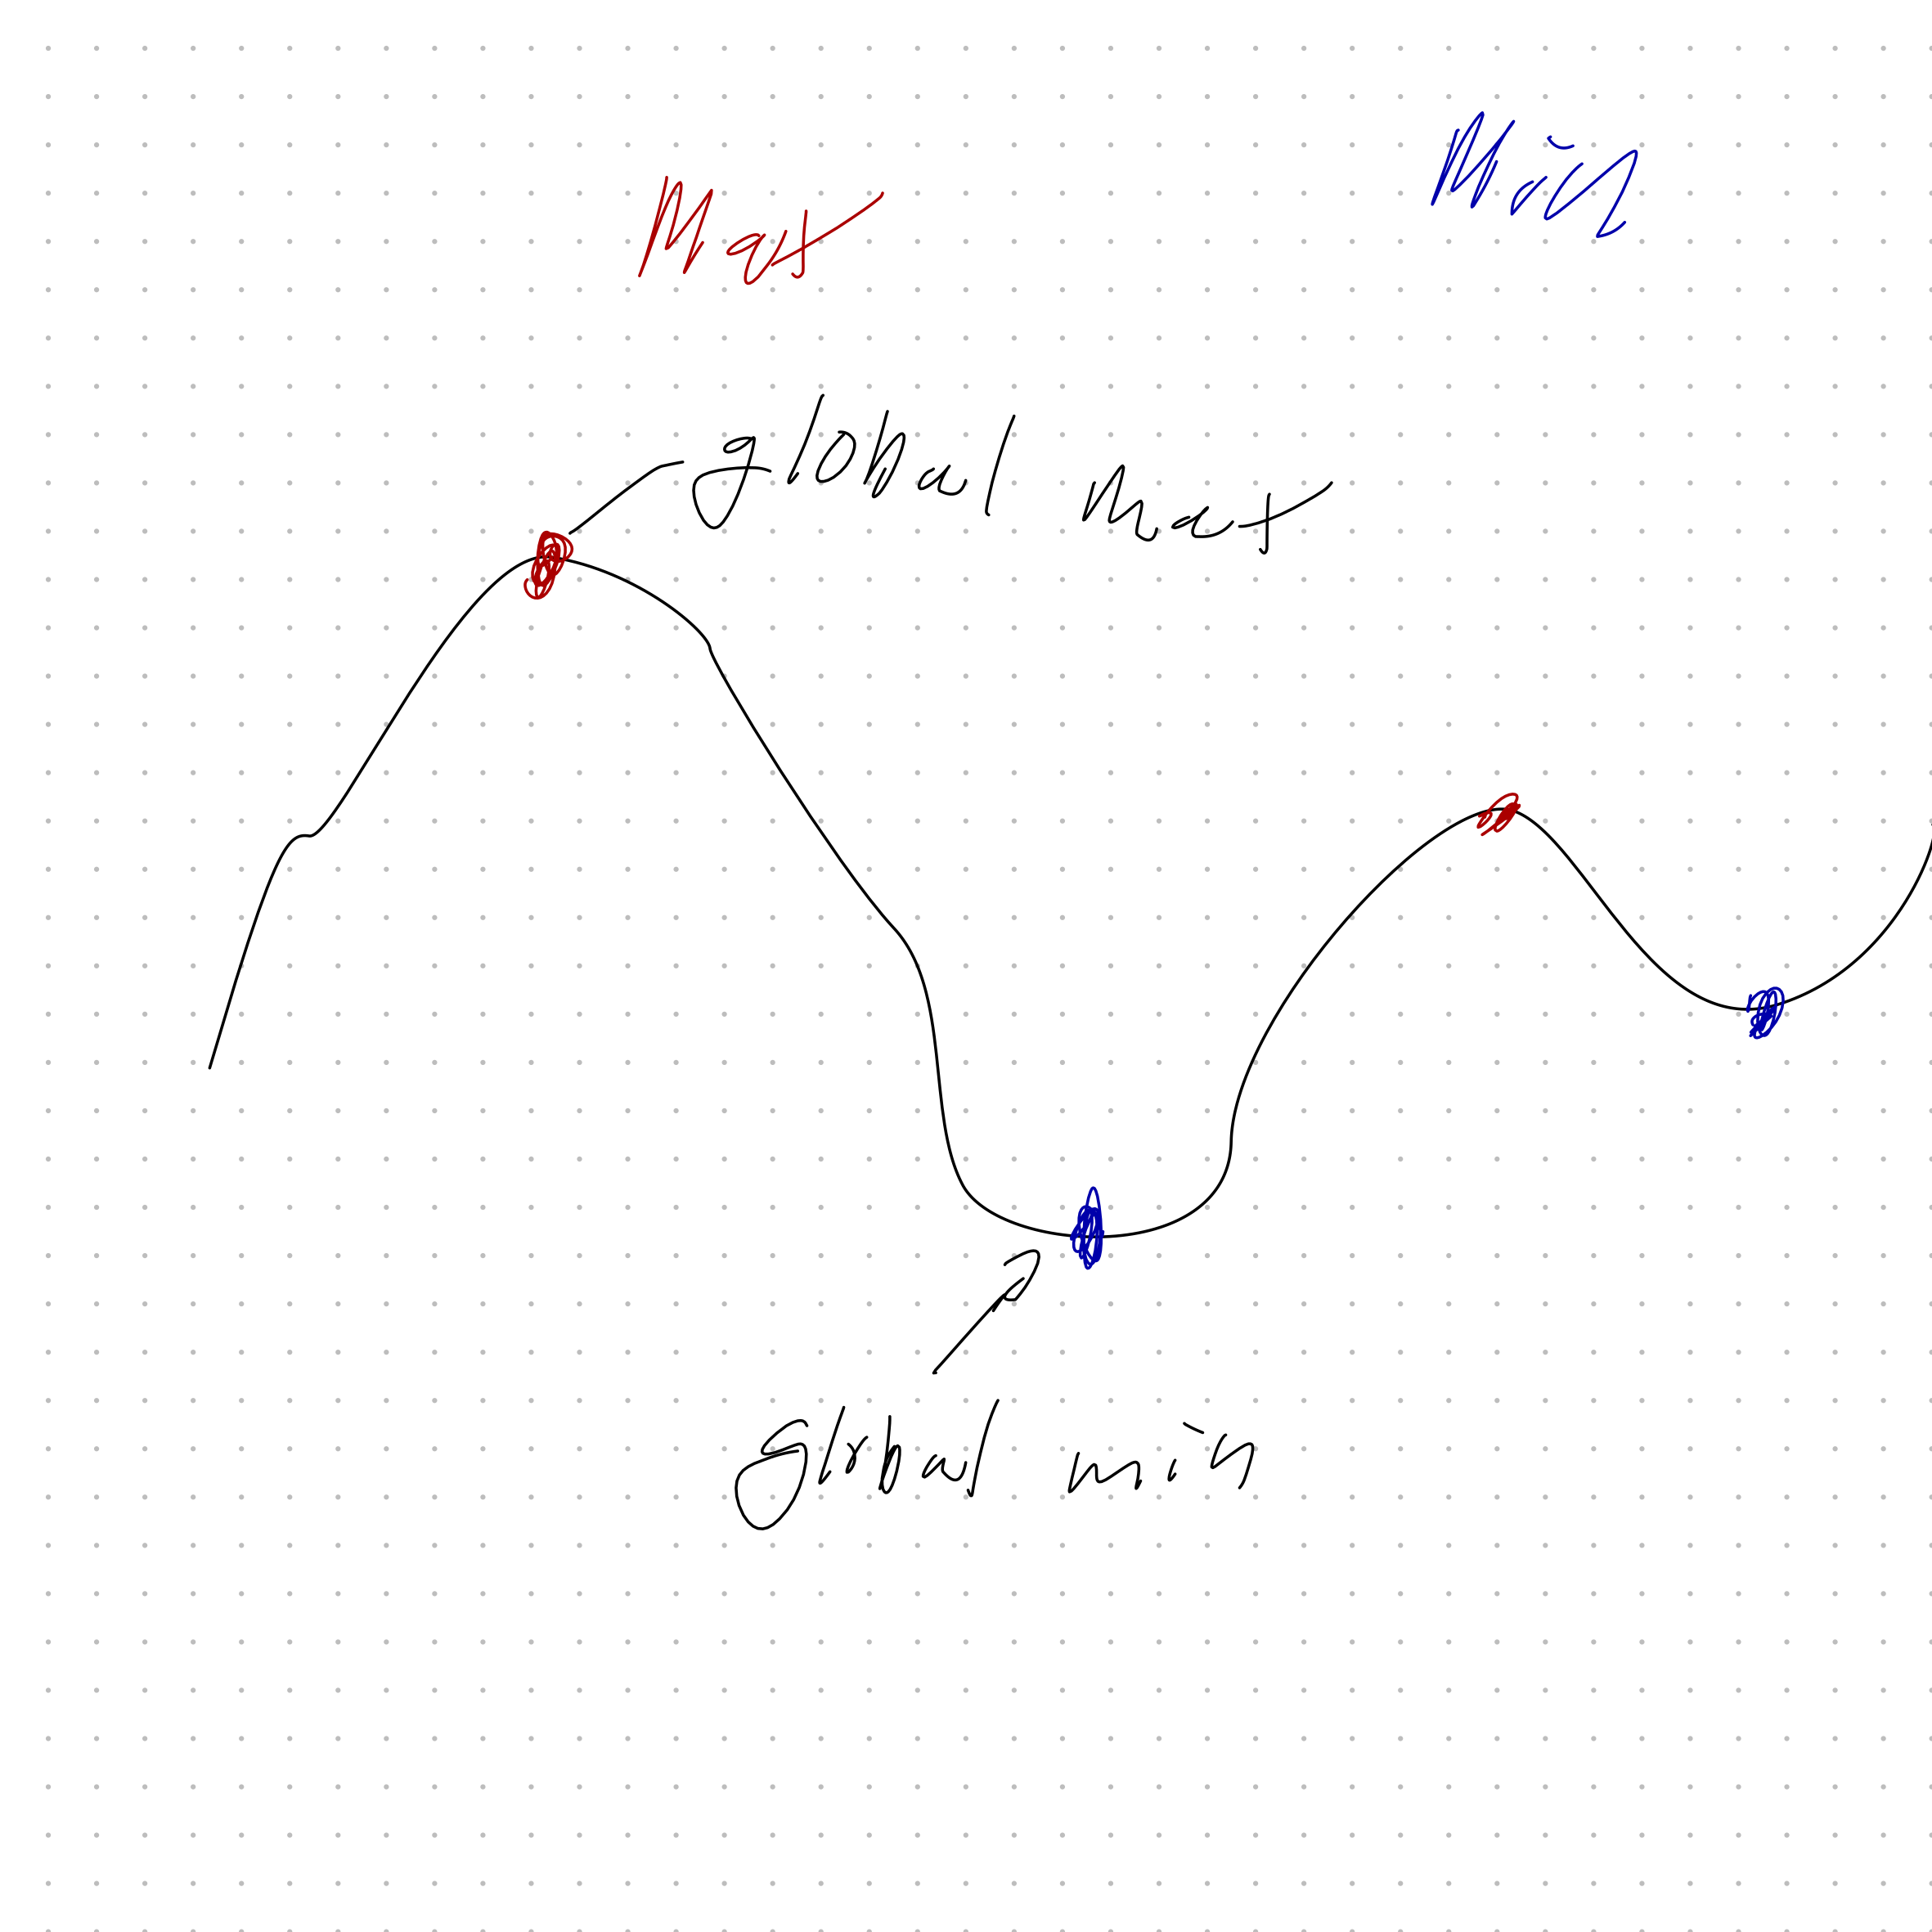 Max
Min
global max
global min